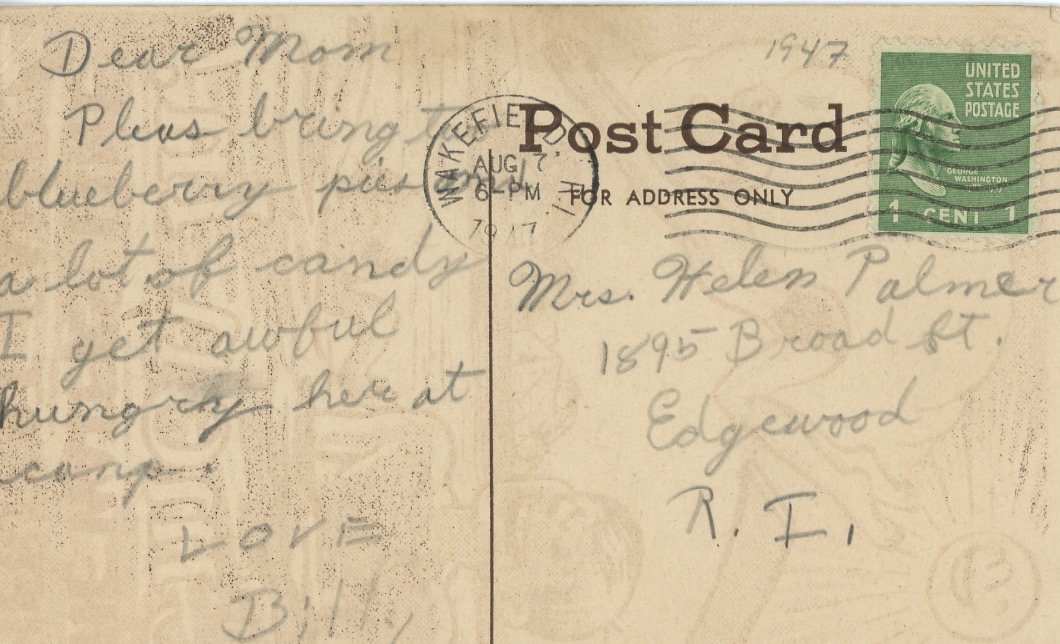 Dear Mom
Pleas bring t
blueberry pies and
a lot of candy
I get awful
hungry her at
camp.
LOVE
Billy
1947
UNITED
STATES
POSTAGE
GEORGE
WASHINGTON
1 CENT 1
WAKEFIELD, R.I.
AUG 7
6 - PM
1947
Post Card
FOR ADDRESS ONLY
Mrs. Helen Palmer
1895 Broad St.
Edgewood
R. I.